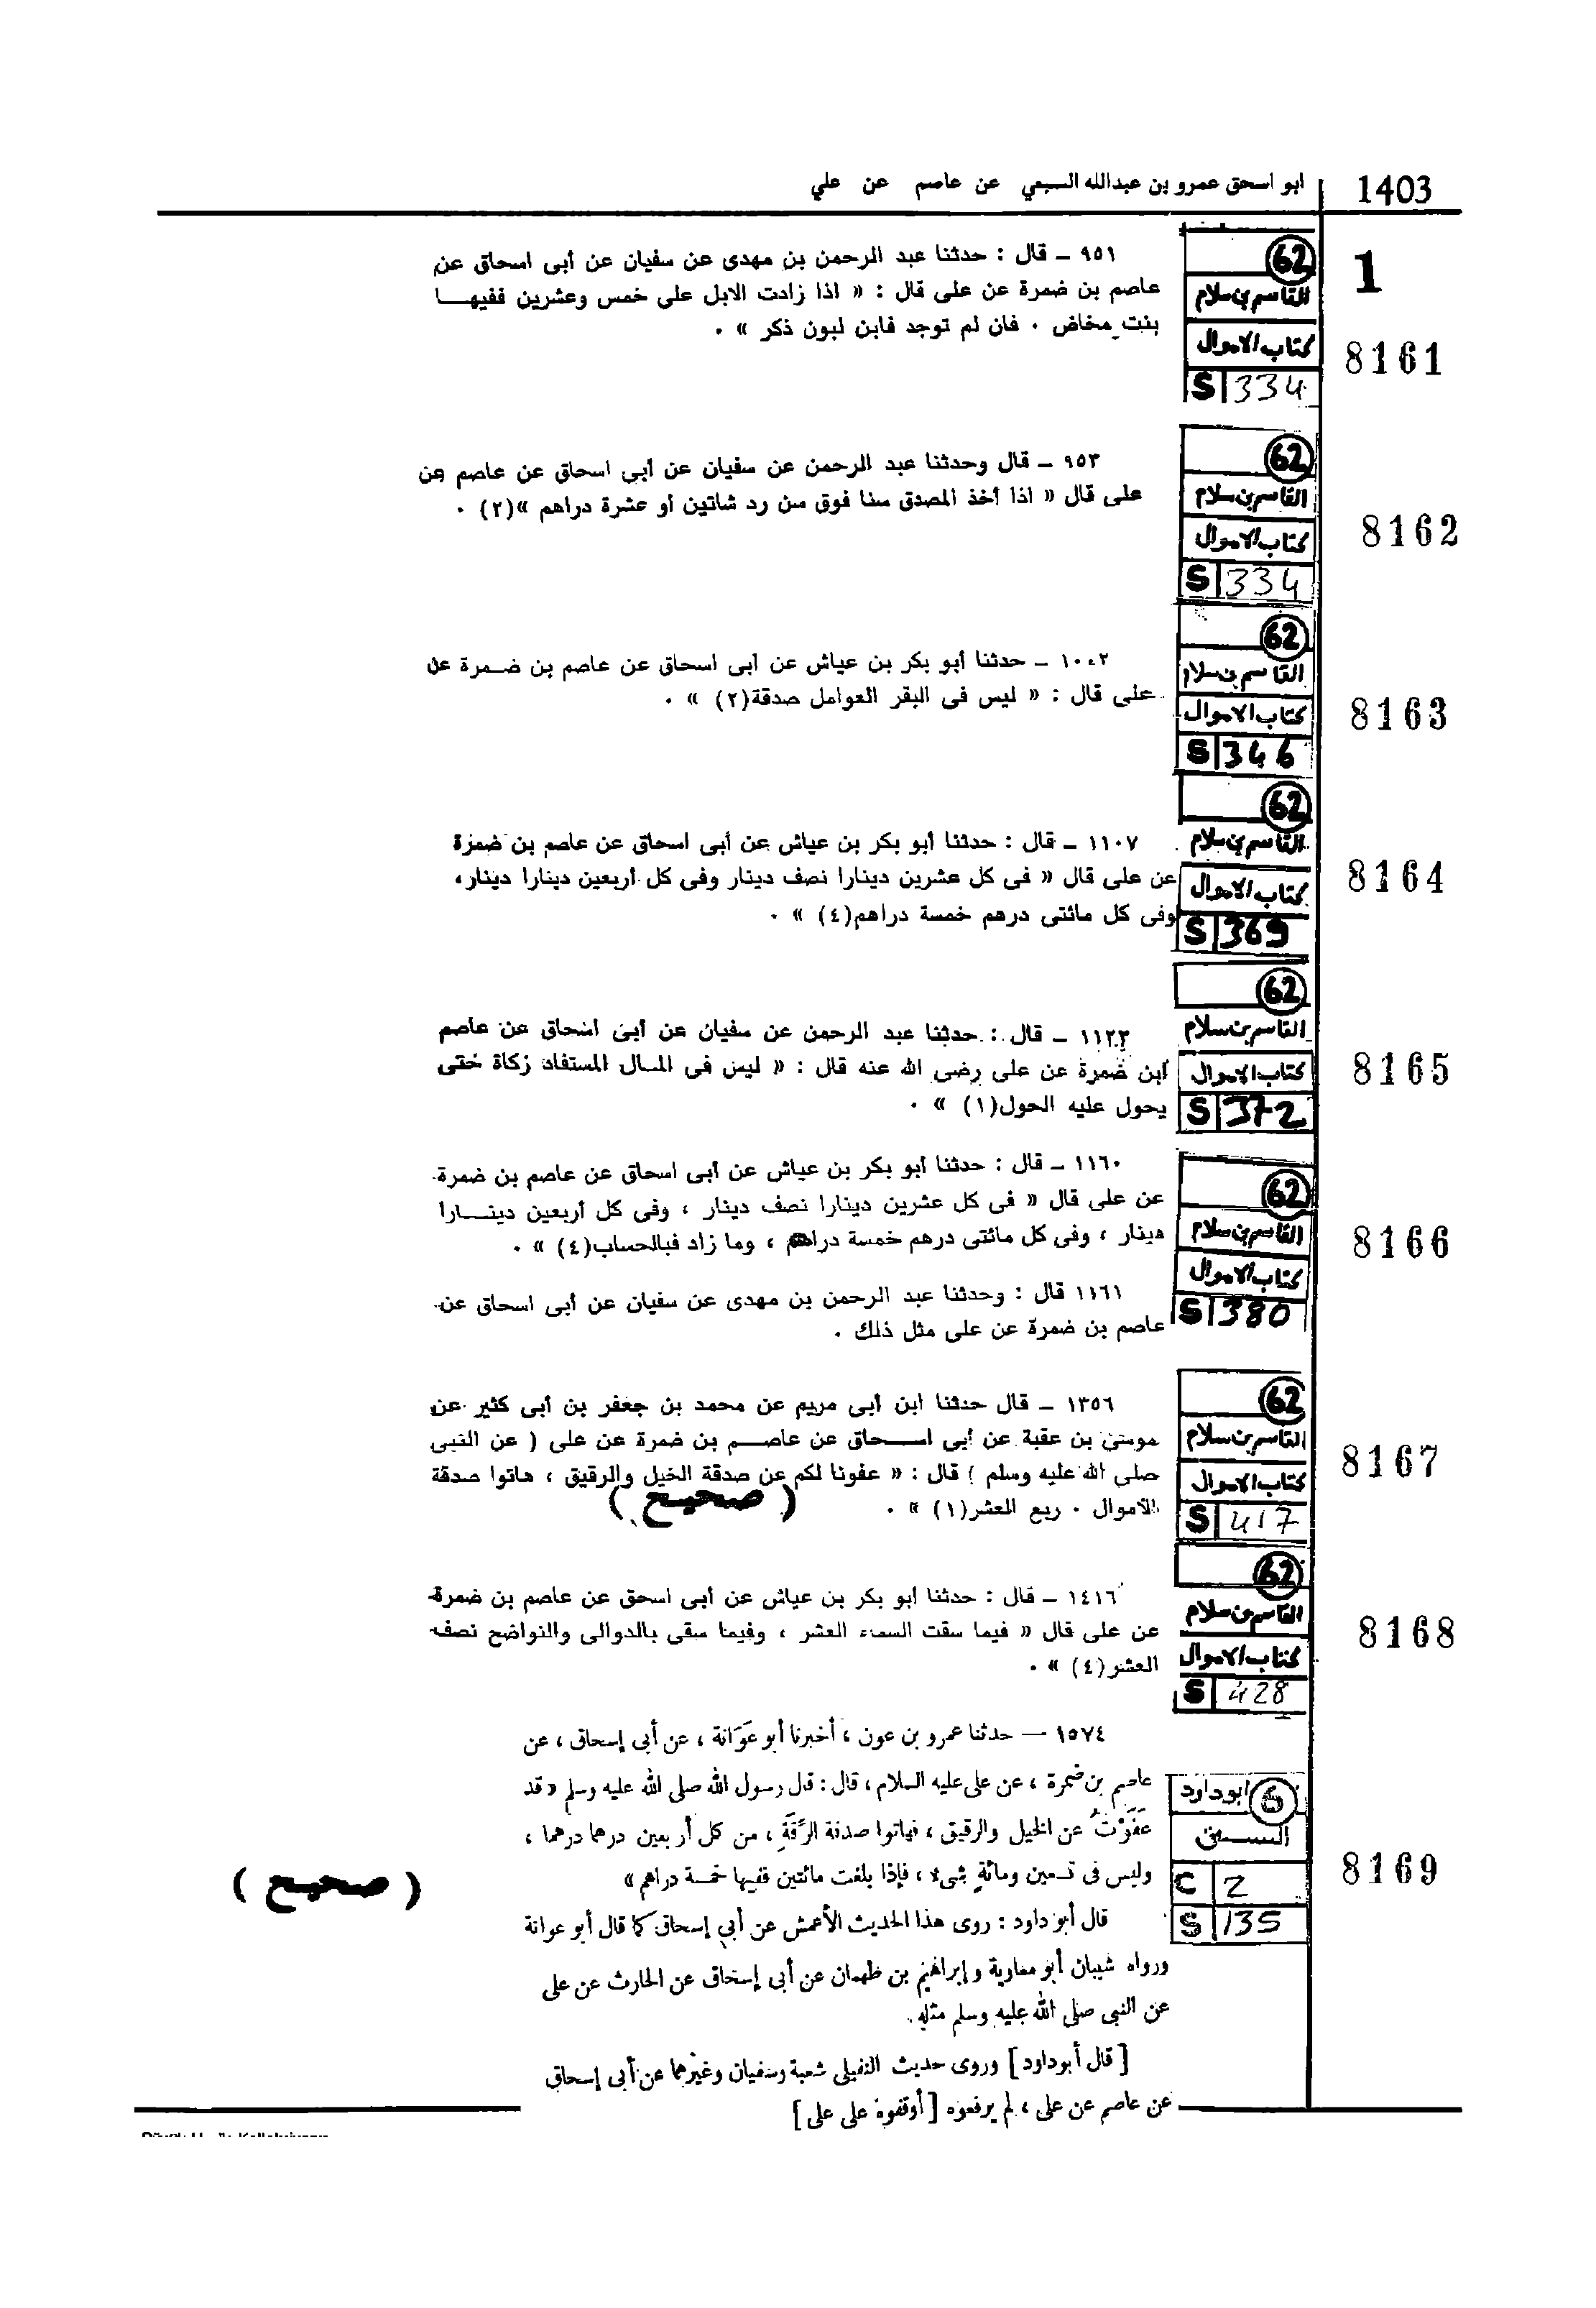 1403
ابو اسحق عمرو بن عبدالله السبعي عن عاصم عن علي
1
8161
62
القاسم بن سلام
كتاب الاموال
S 334
٩٥١ – قال : حدثنا عبد الرحمن بن مهدى عن سفيان عن أبى اسحاق عن
عاصم بن ضمرة عن على قال : « اذا زادت الابل على خمس وعشرين ففيهـــا
بنت مخاض ٠ فان لم توجد فابن لبون ذكر » ٠
8162
62
القاسم بن سلام
كتاب الاموال
S 334
٩٥٣ – قال وحدثنا عبد الرحمن عن سفيان عن أبى اسحاق عن عاصم عن
على قال « اذا أخذ المصدق سنا فوق سن رد شاتين أو عشرة دراهم »(٢) ٠
8163
62
القاسم بن سلام
كتاب الاموال
S 346
١٠٠٢ – حدثنا أبو بكر بن عياش عن أبى اسحاق عن عاصم بن ضـمرة عن
على قال : « ليس فى البقر العوامل صدقة(٢) » ٠
8164
62
القاسم بن سلام
كتاب الاموال
S 369
١١٠٧ – قال : حدثنا أبو بكر بن عياش عن أبى اسحاق عن عاصم بن ضمرة
عن على قال « فى كل عشرين دينارا نصف دينار وفى كل أربعين دينارا دينار،
وفى كل مائتى درهم خمسة دراهم(٤) » ٠
8165
62
القاسم بن سلام
كتاب الاموال
S 372
١١٢٣ – قال : حدثنا عبد الرحمن عن سفيان عن أبى اسحاق عن عاصم
ابن ضمرة عن على رضى الله عنه قال : « ليس فى المال المستفاد زكاة حتى
يحول عليه الحول(١) » ٠
8166
62
القاسم بن سلام
كتاب الاموال
S 380
١١٦٠ – قال : حدثنا أبو بكر بن عياش عن أبى اسحاق عن عاصم بن ضمرة
عن على قال « فى كل عشرين دينارا نصف دينار ، وفى كل أربعين دينـــارا
دينار ، وفى كل مائتى درهم خمسة دراهم ، وما زاد فبالحساب(٤) » ٠
١١٦١ قال : وحدثنا عبد الرحمن بن مهدى عن سفيان عن أبى اسحاق عن
عاصم بن ضمرة عن على مثل ذلك ٠
8167
62
القاسم بن سلام
كتاب الاموال
S 417
١٣٥٦ – قال حدثنا ابن أبى مريم عن محمد بن جعفر بن أبى كثير عن
موسى بن عقبة عن أبى اســـحاق عن عاصـــم بن ضمرة عن على ( عن النبى
صلى الله عليه وسلم ) قال : « عفونا لكم عن صدقة الخيل والرقيق ، هاتوا صدقة
الأموال ٠ ربع العشر(١) » ٠ ( صحيح )
8168
62
القاسم بن سلام
كتاب الاموال
S 428
١٤١٦ – قال : حدثنا أبو بكر بن عياش عن أبى اسحق عن عاصم بن ضمرة
عن على قال « فيما سقت السماء العشر ، وفيما سقى بالدوالى والنواضح نصف
العشر(٤) » ٠
8169
6 ابوداود
السنن
C 2
S 135
١٥٧٤ — حدثنا عمرو بن عون ، أخبرنا أبو عَوَانة ، عن أبى إسحاق ، عن
عاصم بن ضمرة ، عن على عليه السلام ، قال : قال رسول الله صلى الله عليه وسلم « قد
عَفَوْتُ عن الخيل والرقيق ، فهاتوا صدقة الرِّقَةِ ، من كل أربعين درهما درهما ،
وليس فى تسعين ومائةٍ شىء ، فإذا بلغت مائتين ففيها خمسة دراهم »
( صحيح )
قال أبو داود : روى هذا الحديث الأعمش عن أبى إسحاق كما قال أبو عوانة
ورواه شيبان أبو معاوية وإبراهيم بن طهمان عن أبى إسحاق عن الحارث عن على
عن النبى صلى الله عليه وسلم مثله .
[ قال أبو داود ] وروى حديث النفيلى شعبة وسفيان وغيرهما عن أبى إسحاق
عن عاصم عن على ، لم يرفعوه [ أوقفوه على على ]